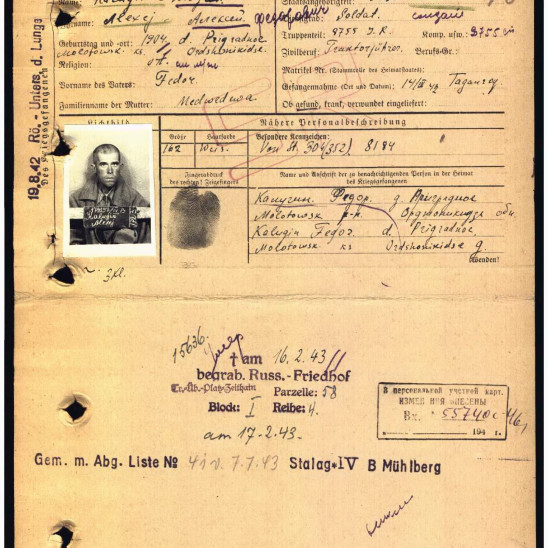 Staatsangehörigkeit:
Vorname: Alexej Алексей Федорович
Dienstgrad: Soldat. солдат
Geburtstag und -ort: 1904, d. Prigradnoe
Truppenteil: 8755 J.R. Komp. usw.: 8755
Molotowsk. ks Ordshonikidse
Zivilberuf: Traktorführer. Berufs-Gr.:
Religion:
Matrikel Nr. (Stammrolle des Heimatstaates)
Vorname des Vaters: Fedor
Gefangennahme (Ort und Datum): 14/III 42 Taganrog
Familienname der Mutter: Medwedewa
Ob gefund, krank, verwundet eingeliefert:
19.8.42 Rö.-Unters. d. Lunge
Des Kriegsgefangenen
Lichtbild
Nähere Personalbeschreibung
Größe Haarfarbe Besondere Kennzeichen:
162 Von St. 304(352) 8184
Kalugin
Fingerabdruck
des rechten! Zeigefingers
Name und Anschrift der zu benachrichtigenden Person in der Heimat
des Kriegsgefangenen
Калугин Федор. д. Приградное
Молотовск р-н. Орджоникидзе обл.
Kalugin Fedor d. Prigradnoe
Molotowsk ks Ordshonikidse g.
Wenden!
2. 3 Kl.
15636
умер
† am 16.2.43
begrab. Russ.-Friedhof
Tr.-Üb.-Platz-Zeithain Parzelle: 58
Block: I Reihe: 4.
am 17-2-43.
В персональной учетной карт.
ИЗМЕНЕНИЯ ВНЕСЕНЫ
Вх. 55740с
194 г.
Gem. m. Abg. Liste No 41 v. 7.7.43 Stalag IV B Mühlberg